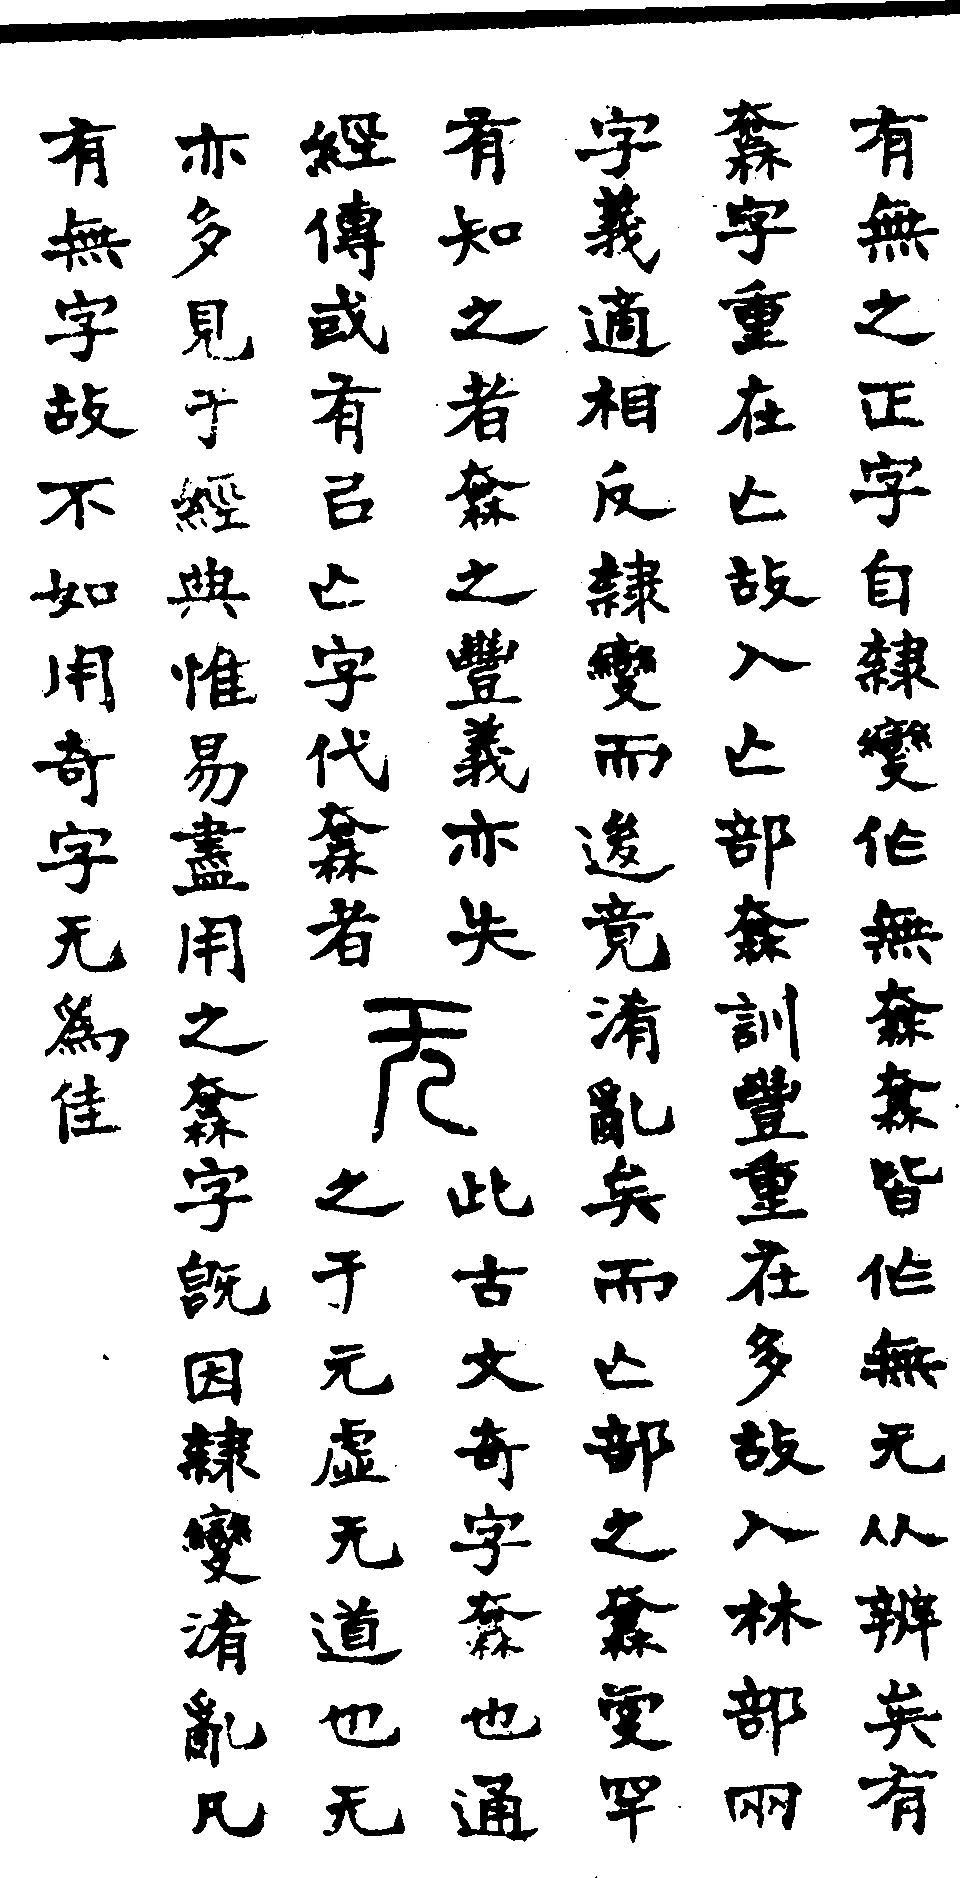 有無之正字自隸變作無橆橆皆作無无从辨矣有
橆字重在亾故入亾部橆訓豐重在多故入林部兩
字義適相反隸變而後竟淆亂矣而亾部之橆更罕
有知之者橆之豐義亦失
經傳或有㠯亾字代橆者
无
此古文奇字橆也通
之于元虛无道也无
亦多見于經典惟易盡用之橆字既因隸變淆亂凡
有無字故不如用奇字无爲佳